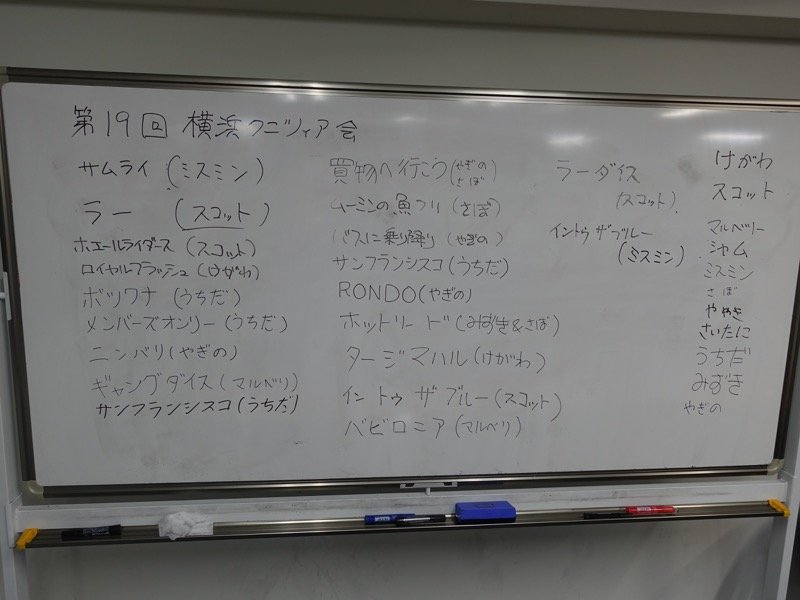 第19回 横浜クニツィア会
サムライ (ミスミン)
ラー (スコット)
ホエールライダース (スコット)
ロイヤルフラッシュ (けがわ)
ボツワナ (うちだ)
メンバーズオンリー (うちだ)
ニンバリ (やぎの)
ギャングダイス (マルベリ)
サンフランシスコ (うちだ)
買物へ行こう (やぎの さぼ)
ムーミンの魚フリ (さぼ)
(バスに乗り降り) (やぎの)
サンフランシスコ (うちだ)
RONDO (やぎの)
ホットリード (みずき&さぼ)
タージマハル (けがわ)
イントゥ ザ ブルー (スコット)
バビロニア (マルベリ)
ラーダイス
(スコット)
イントゥ ザ ブルー
(ミスミン)
けがわ
スコット
マルベリー
シャム
ミスミン
さぼ
さいたに
うちだ
みずき
やぎの